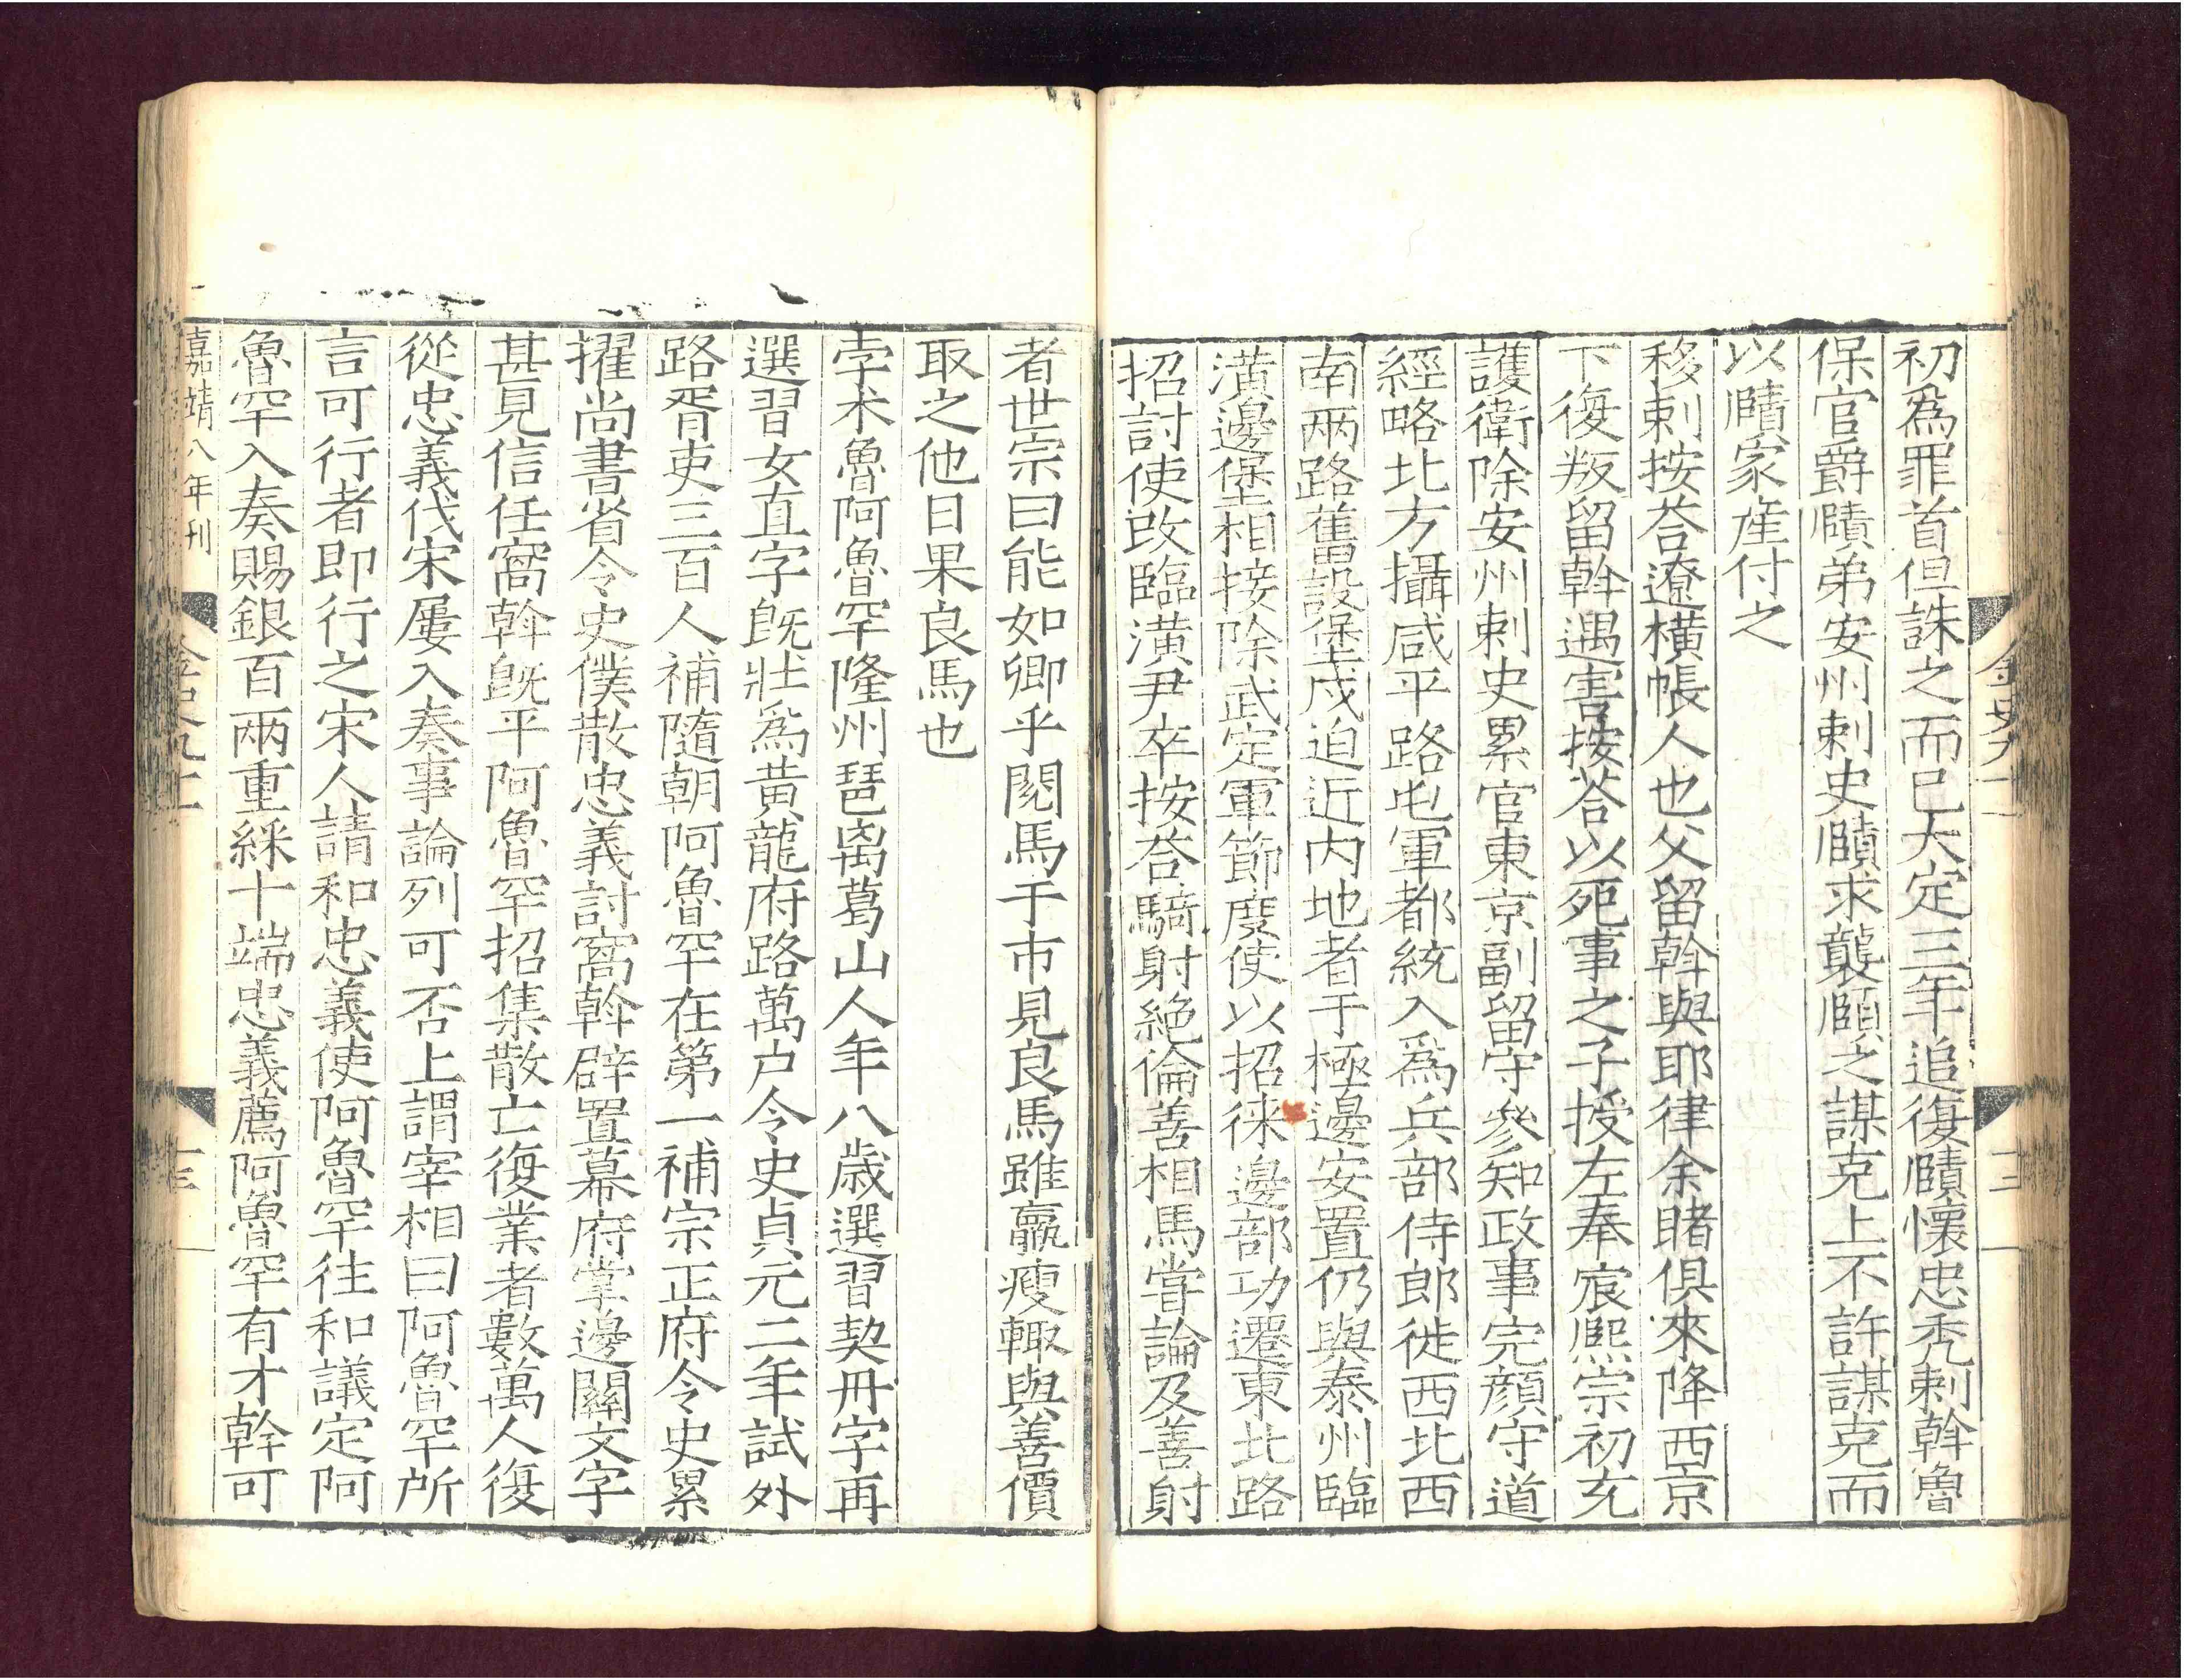 初爲罪首但誅之而已大定三年追復賾懷忠禿剌斡魯
保官爵賾弟安州剌史頥求襲頥之謀克上不許謀克而
以賾家産付之
移剌按荅遼橫帳人也父留斡與耶律余睹俱來降西京
下復叛留斡遇害按荅以死事之子授左奉宸熈宗初充
護衛除安州剌史累官東京副留守參知政事完顔守道
經略北方攝咸平路屯軍都統入爲兵部侍郎徙西北西
南兩路舊設堡戍迫近内地者于極邊安置仍與泰州臨
潢邊堡相接除武定軍節度使以招徠邊部功遷東北路
招討使改臨潢尹卒按荅騎射絶倫善相馬嘗論及善射
金史九十一
十三
者世宗曰能如卿乎閱馬于市見良馬雖羸瘦輙與善價
取之他日果良馬也
孛术魯阿魯罕隆州琶离葛山人年八歲選習契丹字再
選習女直字旣壯爲黃龍府路萬户令史貞元二年試外
路胥吏三百人補隨朝阿魯罕在第一補宗正府令史累
擢尚書省令史僕散忠義討窩斡辟置幕府掌邊關文字
甚見信任窩斡旣平阿魯罕招集散亡復業者數萬人復
從忠義伐宋屢入奏事論列可否上謂宰相曰阿魯罕所
言可行者即行之宋人請和忠義使阿魯罕往和議定阿
魯罕入奏賜銀百兩重綵十端忠義薦阿魯罕有才幹可
嘉靖八年刊